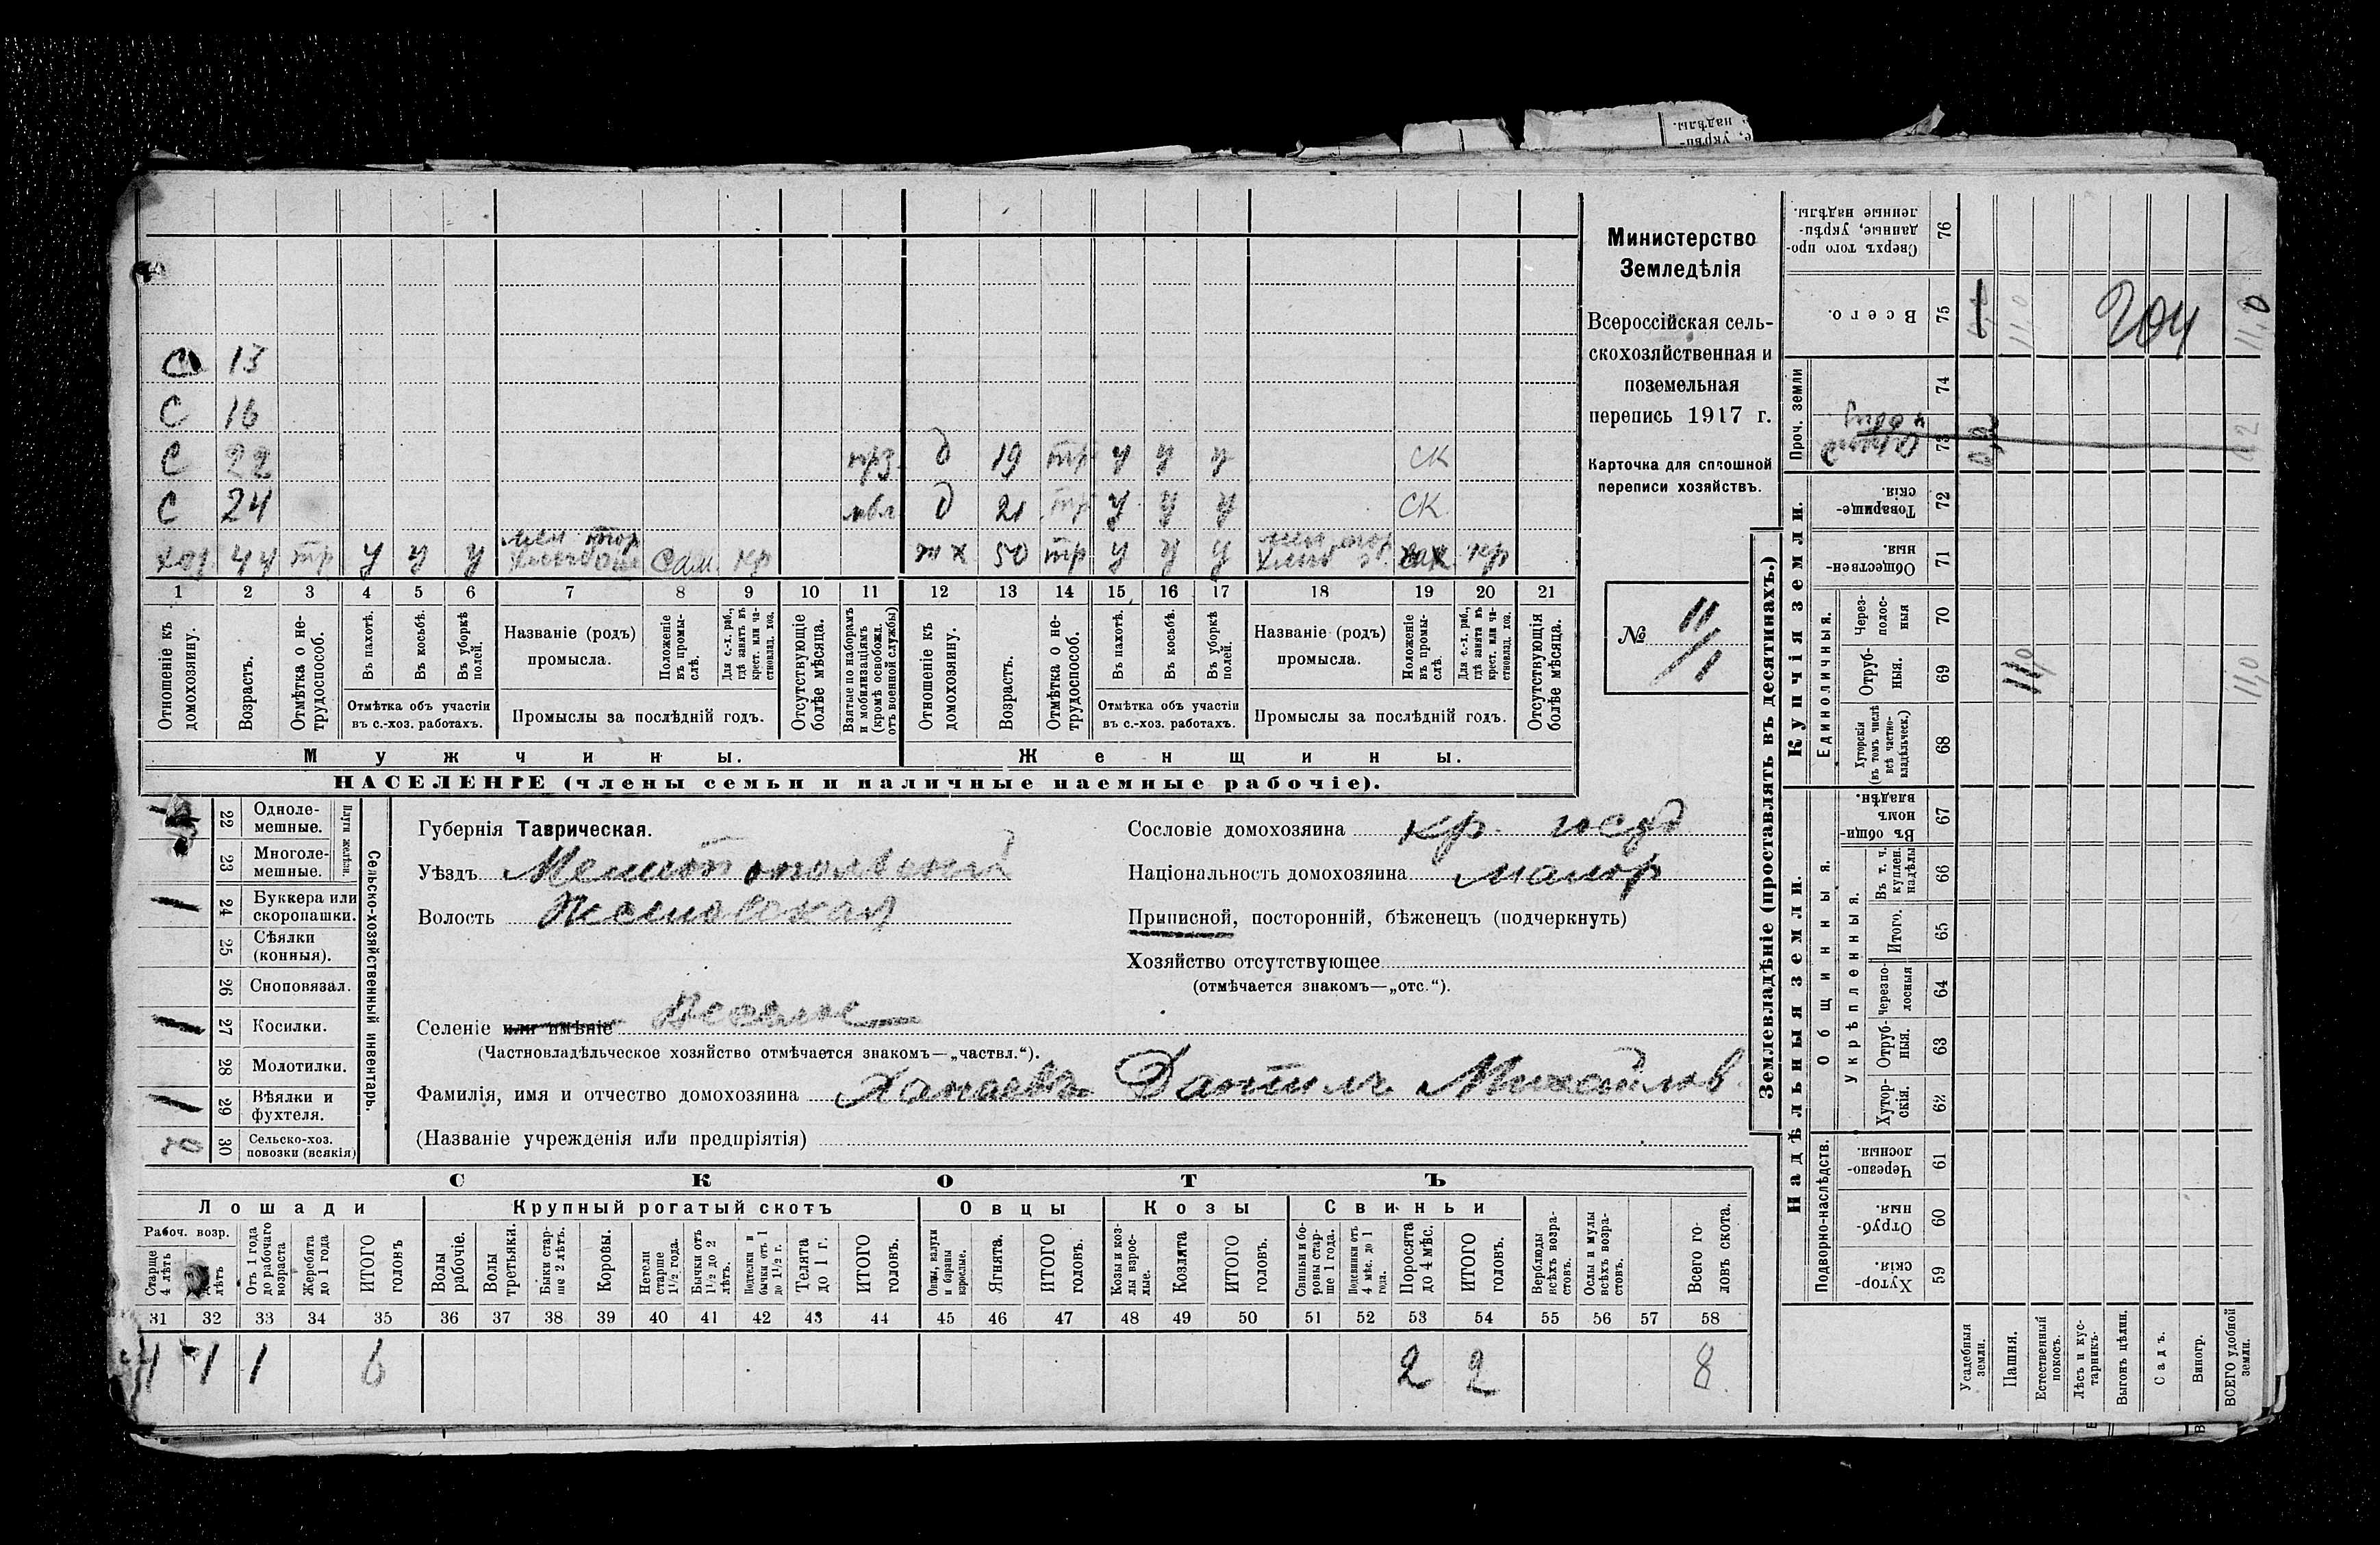 С 13
С 16
С 22 прз д 19 тр у у у ск
С 24 мвл д 21 тр у у у ск
хоз 44 тр у у у сам. кр ж х 50 тр у у у кр
1 2 3 4 5 6 7 8 9 10 11 12 13 14 15 16 17 18 19 20 21
Отношеніе къ домохозяину.
Возрастъ.
Отмѣтка о не-
трудоспособ.
Въ пахотѣ.
Въ косьбѣ.
Въ уборкѣ
полей.
Отмѣтка объ участіи
въ с.-хоз. работахъ.
Названіе (родъ)
промысла.
Положеніе
въ промы-
слѣ.
Для с.-х. раб.,
гдѣ занятъ въ
крест. или ча-
стновлад. хоз.
Промыслы за послѣдній годъ.
Отсутствующіе
болѣе мѣсяца.
Взятые по наборамъ
и мобилизаціямъ
(кромѣ освобожд.
отъ военной службы)
Отношеніе къ
домохозяину.
Возрастъ.
Отмѣтка о не-
трудоспособ.
Въ пахотѣ.
Въ косьбѣ.
Въ уборкѣ
полей.
Отмѣтка объ участіи
въ с.-хоз. работахъ.
Названіе (родъ)
промысла.
Положеніе
въ промы-
слѣ.
Для с.-х. раб.,
гдѣ занята въ
крест. или ча-
стновлад. хоз.
Промыслы за послѣдній годъ.
Отсутствующія
болѣе мѣсяца.
Мужчины. Женщины.
НАСЕЛЕНІЕ (члены семьи и наличные наемные рабочіе).
Министерство
Земледѣлія
Всероссійская сель-
скохозяйственная и
поземельная
перепись 1917 г.
Карточка для сплошной
переписи хозяйствъ.
№ 11/1
Сельско-хозяйственный инвентарь.
Плуги желѣзн.
22 Одноле-
мешные.
23 Многоле-
мешные.
24 Буккера или
скоропашки.
25 Сѣялки
(конныя).
26 Сноповязал.
27 Косилки.
28 Молотилки.
29 Вѣялки и
фухтеля.
30 Сельско-хоз.
повозки (всякія)
Губернія Таврическая.
Уѣздъ Мелитопольскій
Волость
Селеніе или имѣніе Веселое
(Частновладѣльческое хозяйство отмѣчается знакомъ—„частвл.“).
Фамилія, имя и отчество домохозяина Ханаевъ Данилъ Михайлов
(Названіе учрежденія или предпріятія)
Сословіе домохозяина кр.
Національность домохозяина малор
Приписной, посторонній, бѣженецъ (подчеркнуть)
Хозяйство отсутствующее
(отмѣчается знакомъ—„отс.“).
СКОТЪ
Лошади Крупный рогатый скотъ Овцы Козы Свиньи
Рабоч. возр.
Старше
4 лѣтъ
лѣтъ
Отъ 1 года
до рабочаго
возраста
Жеребята
до 1 года
ИТОГО
головъ
Волы
рабочіе.
Волы
третьяки.
Быки стар-
ше 2 лѣтъ.
Коровы.
Нетели
старше
1½ года.
Бычки отъ
1½ до 2
лѣтъ.
Подтелки и
бычки отъ 1
до 1½ г.
Телята
до 1 г.
ИТОГО
головъ.
Овцы, валухи
и бараны
взрослые.
Ягнята.
ИТОГО
головъ.
Козы и коз-
лы взрос-
лые.
Козлята
ИТОГО
головъ.
Свиньи и бо-
ровы стар-
ше 1 года.
Подсвинки отъ
4 мѣс. до 1
года.
Поросята
до 4 мѣс.
ИТОГО
головъ.
Верблюды
всѣхъ возра-
стовъ.
Ослы и мулы
всѣхъ возра-
стовъ.
Всего го-
ловъ скота.
31 32 33 34 35 36 37 38 39 40 41 42 43 44 45 46 47 48 49 50 51 52 53 54 55 56 57 58
4 1 1 6 2 2 8
Землевладѣніе (проставлять въ десятинахъ.)
Надѣльныя земли. Купчія земли. Проч. земли
Подворно-наслѣдств.
Общинныя.
Укрѣпленныя.
Единоличныя.
Сверхъ того про-
данные, укрѣп-
ленные надѣлы.
76
Всего. 75
74
73
Товарище-
скія. 72
Обществен-
ныя. 71
Через-
полос-
ныя 70
Отруб-
ныя. 69
Хуторскія
(въ томъ числѣ
всѣ частно-
владѣльческ.) 68
Въ общин-
номъ
владѣн. 67
Въ т. ч.
куплен.
надѣлы 66
Итого. 65
Черезпо-
лосныя 64
Отруб-
ныя. 63
Хутор-
скія. 62
Черезпо-
лосныя. 61
Отруб-
ныя. 60
Хутор-
скія. 59
Усадебныя
земли.
Пашня.
Естественный
покосъ.
Лѣсъ и кус-
тарникъ.
Выгонъ цѣлин.
Садъ.
Виногр.
ВСЕГО удобной
земли.
11,0 204 11,0
0,2
11,0 11,0